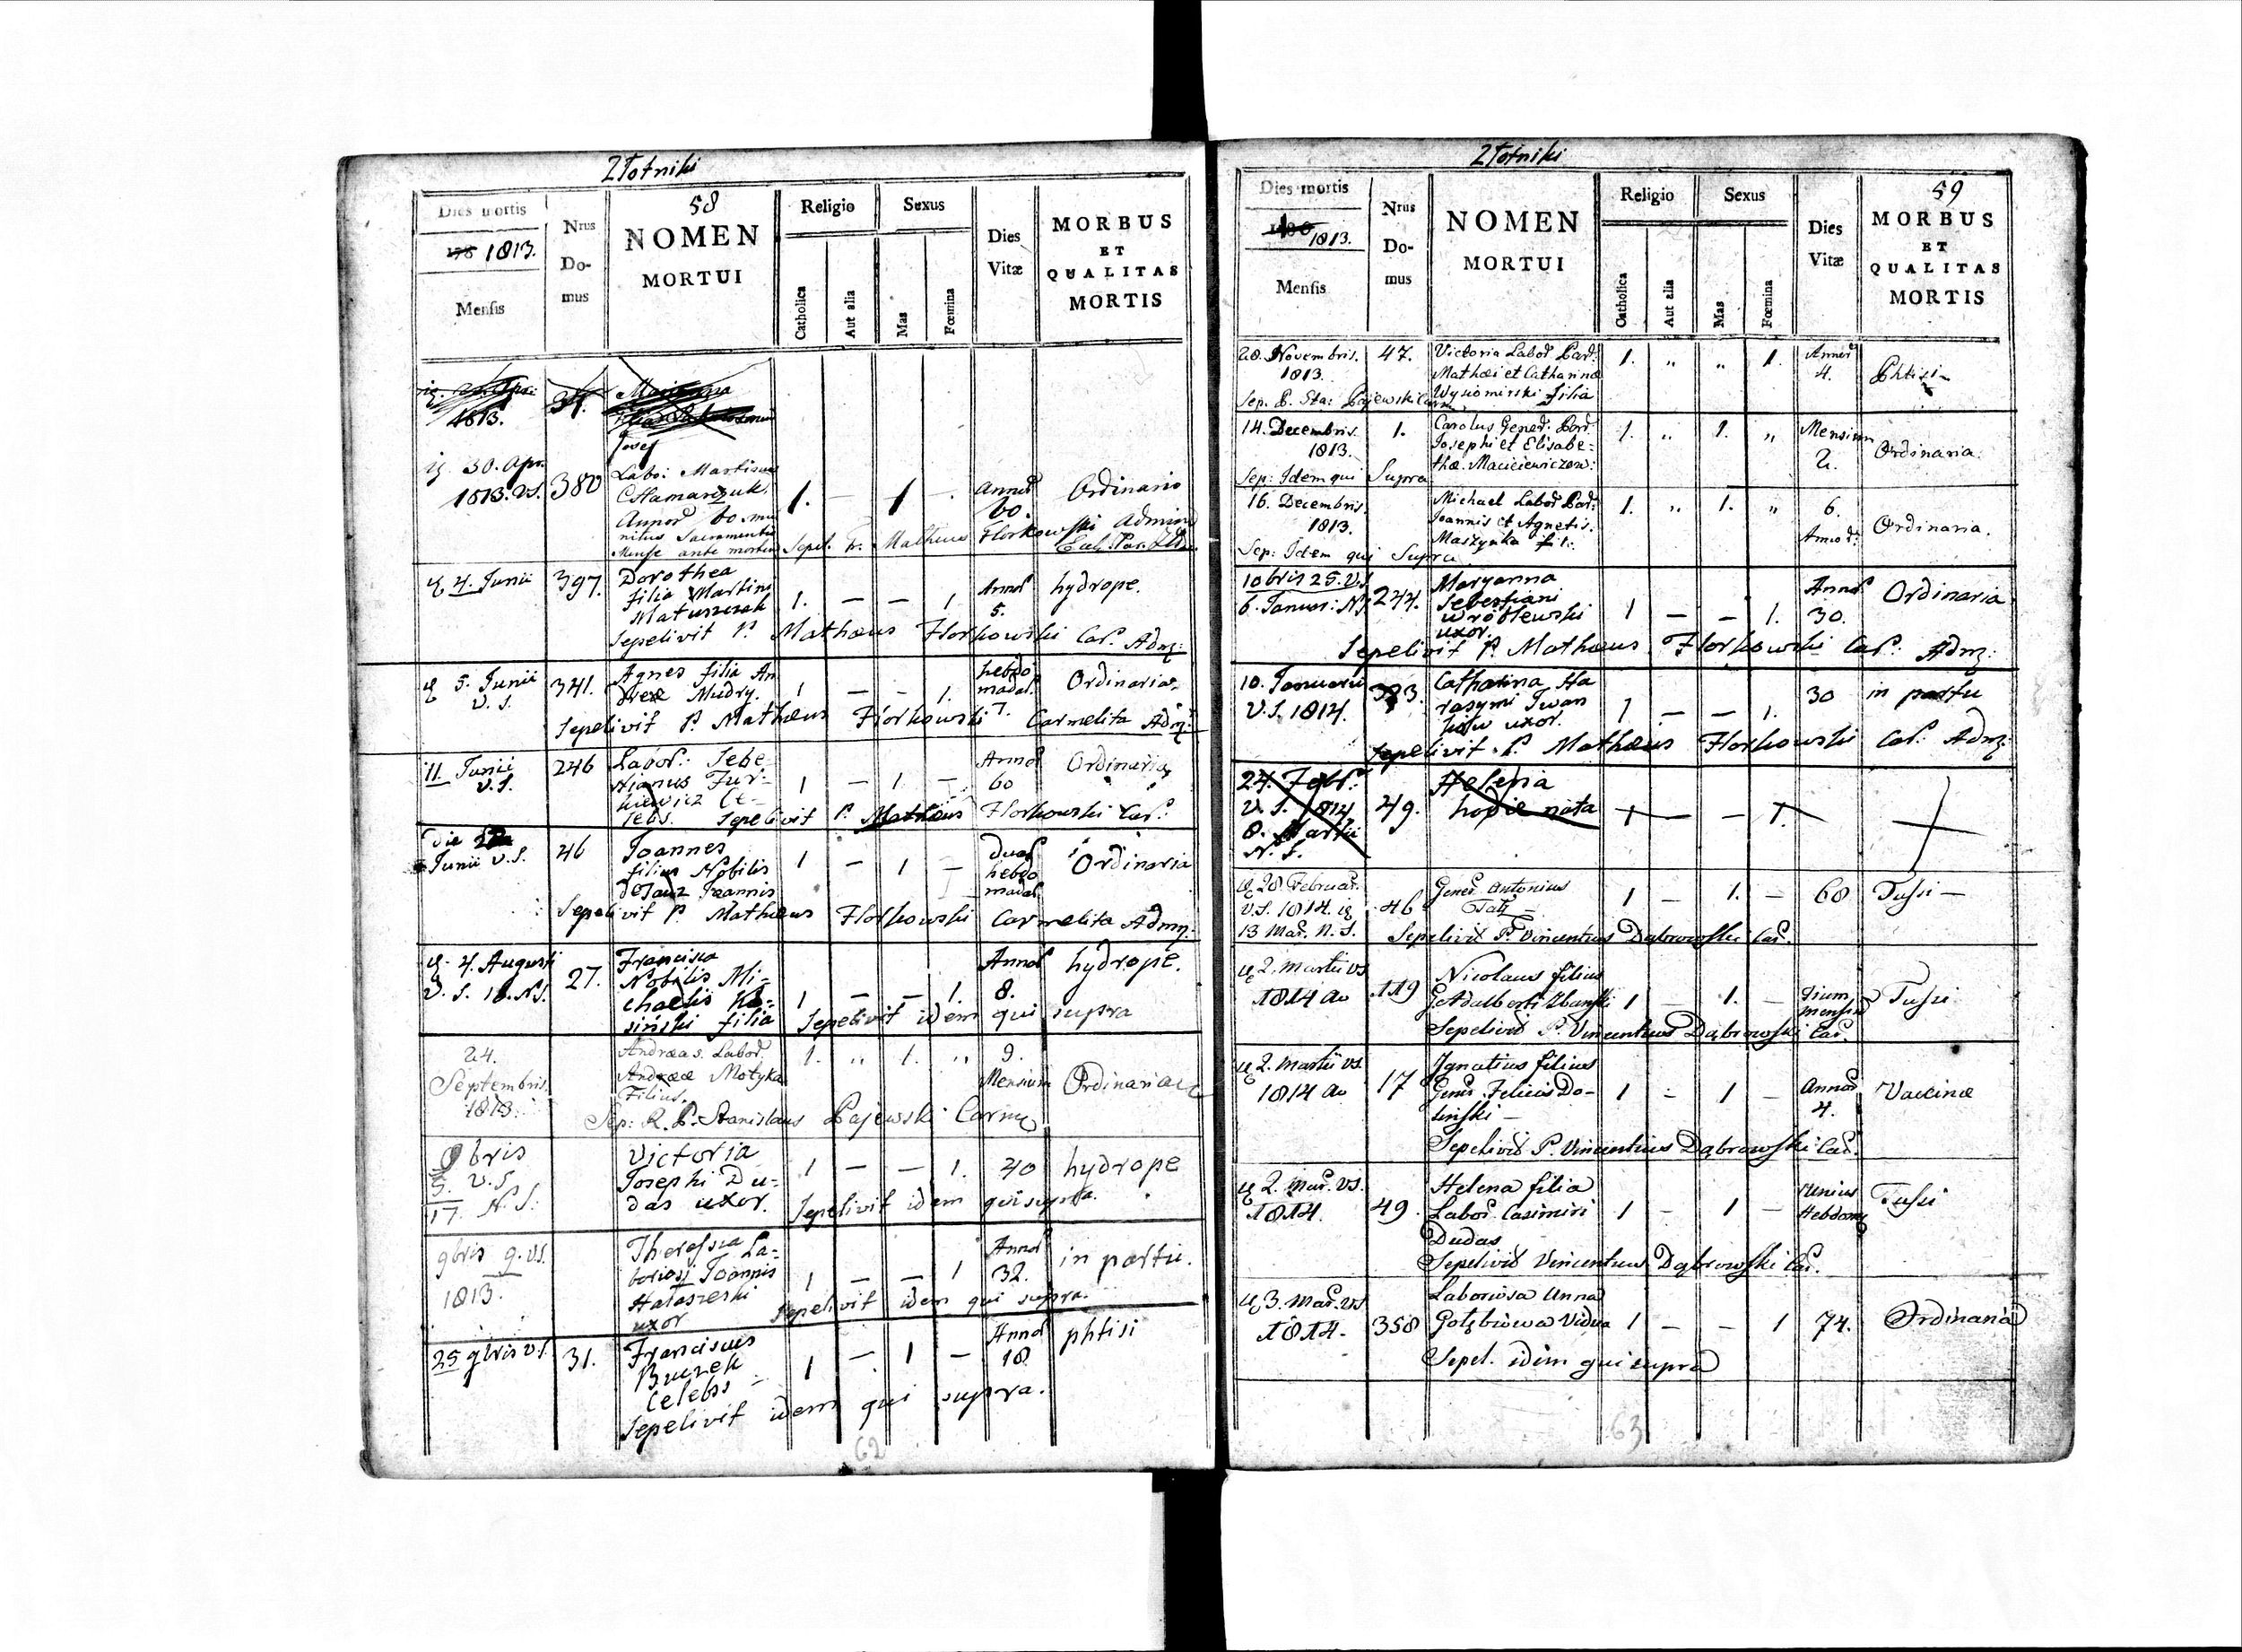 Złotniki
58
Dies mortis
1813.
Mensis
Nrus
Do-
mus
NOMEN
MORTUI
Religio
Catholica
Aut alia
Sexus
Mas
Fœmina
Dies
Vitæ
MORBUS
ET
QUALITAS
MORTIS
1813.
Josef
30. Apr.
1813. V.S.
380
Labo: Martinus
Annor 60. mu
nitus Sacramentis
Mense ante mortem
1.
—
1
Annor
60.
Ordinario
Sepel. Fr. Matheus Florkowski Admin
4. Junii
397.
Dorothea
filia Martini
Matuszczak
1.
—
—
1
Annor
5.
hydrope.
Sepelivit P. Mathæus Florkowski Car. Admr:
5. Junii
V. S.
341.
Agnes filia An
dreæ Mudry.
1
—
—
1.
hebdo
madal.
7.
Ordinaria
Sepelivit P. Mathæus Florkowski Carmelita Admr:
11. Junii
V. S.
246
Labor: Seba
stianus Jur-
kiewicz Ce-
lebs.
1
—
1.
—
Annor
60
Ordinaria
Sepelivit P. Mathæus Florkowski Car.
Die
Junii V. S.
46
Joannes
filius Nobilis
Joannis
1
—
1
—
duar
hebdo
madal.
Ordinaria
Sepelivit P. Mathæus Florkowski Carmelita Admr:
4. Augusti
V. S. 16. N.S.
27.
Francisca
Nobilis Mi-
chaelis Ko-
siński filia
1
—
—
1.
Annor
8.
hydrope.
Sepelivit idem qui supra
24.
Septembris.
1813.
Andreas. Labor.
Andreæ Motyka
Filius.
1.
"
1.
"
9.
Mensium
Ordinaria
Sep: R. P. Stanislaus Pajewski Carm
9bris
5. V. S
17. N. S:
Victoria
Josephi Du-
das uxor.
1
—
—
1.
40
hydrope
Sepelivit idem qui supra.
9bris 9. V.S.
1813.
Theressia La-
boriosi Joannis
Hałaszeski
uxor
1
—
—
1
Annor
32.
in partu.
Sepelivit idem qui supra.
25 9bris V.S.
31.
Franciscus
Buczek
Celebs
1
—
1
—
Annor
18.
phtisi
Sepelivit idem qui supra.
62
Złotniki
59
Dies mortis
1813.
Mensis
Nrus
Do-
mus
NOMEN
MORTUI
Religio
Catholica
Aut alia
Sexus
Mas
Fœmina
Dies
Vitæ
MORBUS
ET
QUALITAS
MORTIS
20. Novembris.
1813.
47.
Victoria Labor Par:
Mathæi et Catharinæ
Wysiomirski filia
1.
"
"
1.
Annor
4.
Phtisi
Sep. P. Sta: Pajewski Carm
14. Decembris.
1813.
1.
Carolus Gener. Par
Josephi et Elisabe-
thæ. Maciciewiczow:
1.
"
1.
"
Mensium
2.
Ordinaria.
Sep: Idem qui Supra
16. Decembris.
1813.
Michael Labor Par:
Joannis et Agnetis.
Maszynka fil:
1.
"
1.
"
6.
Annor:
Ordinaria.
Sep: Idem qui Supra
10bris 25. V.S
6. Januar: N.S
244.
Maryanna
Sebestiani
Wroblewski
uxor.
1
—
—
1.
Annor
30.
Ordinaria
Sepelivit P. Mathæus Florkowski Car. Admr:
10. Januarii
V. S. 1814.
383.
Catharina Ha
rasymi Iwan
uxor.
1
—
—
1.
30
in partu
Sepelivit P. Mathæus Florkowski Car: Admr:
24. Febr.
V. S. 1814
8. Martii
N. S.
49.
Helena
hodie nata
1
—
—
1.
28 Februar.
V. S. 1814.
13 Mar. N. S.
46
Gener Antonius
1
—
1.
—
60
Tussi —
Sepelivit P. Vincentius Dąbrowski Car.
2. Martii VS
1814 ao
119
Nicolaus filius
G Adalberti Ubanski
1
—
1.
—
Trium
mensium
Tussi
Sepelivit P. Vincentius Dąbrowski Car.
2. Martii VS.
1814 ao
17
Ignatius filius
Gener Felicis Do-
linski —
1
—
1
—
Annor
4.
Vaccinæ
Sepelivit P. Vincentius Dąbrowski Car.
2. Mar. VS.
1814.
49.
Helena filia
Labor Casimiri
Dudas
1
—
1
—
Unius
Hebdom
Tussi
Sepelivit Vincentius Dąbrowski Car.
3. Mar. VS
1814.
358
Laboriosa Anna
Gołębiowa Vidua
1
—
—
1
74.
Ordinaria
Sepel. idem qui supra
63